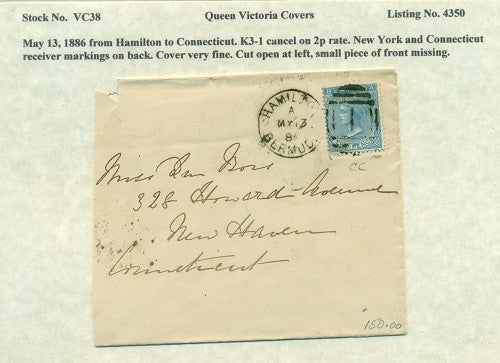 Stock No. VC38 Queen Victoria Covers Listing No. 4350
May 13, 1886 from Hamilton to Connecticut. K3-1 cancel on 2p rate. New York and Connecticut
receiver markings on back. Cover very fine. Cut open at left, small piece of front missing.
HAMILTON
A
MY 13
8
BERMUD
1
CC
Miss
328 Howard Avenue
New Haven
Connecticut
150.00